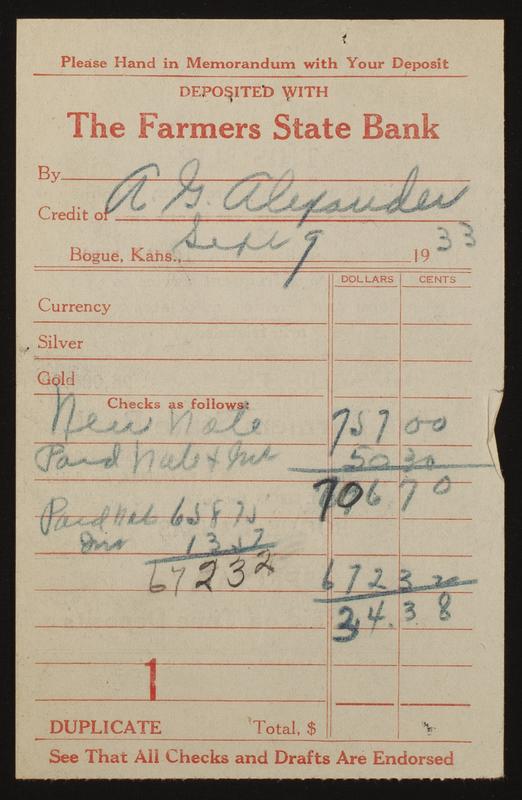 Please Hand in Memorandum with Your Deposit
DEPOSITED WITH
The Farmers State Bank
By
Credit of A G. Alexander
Bogue, Kans., Sept 9 1933
DOLLARS CENTS
Currency
Silver
Gold
Checks as follows:
New Note 757 00
Paid Note & Int 50 30
706 70
Paid Not 658 75
Int 13 57
672 32 672 32
34.38
1
DUPLICATE Total, $
See That All Checks and Drafts Are Endorsed